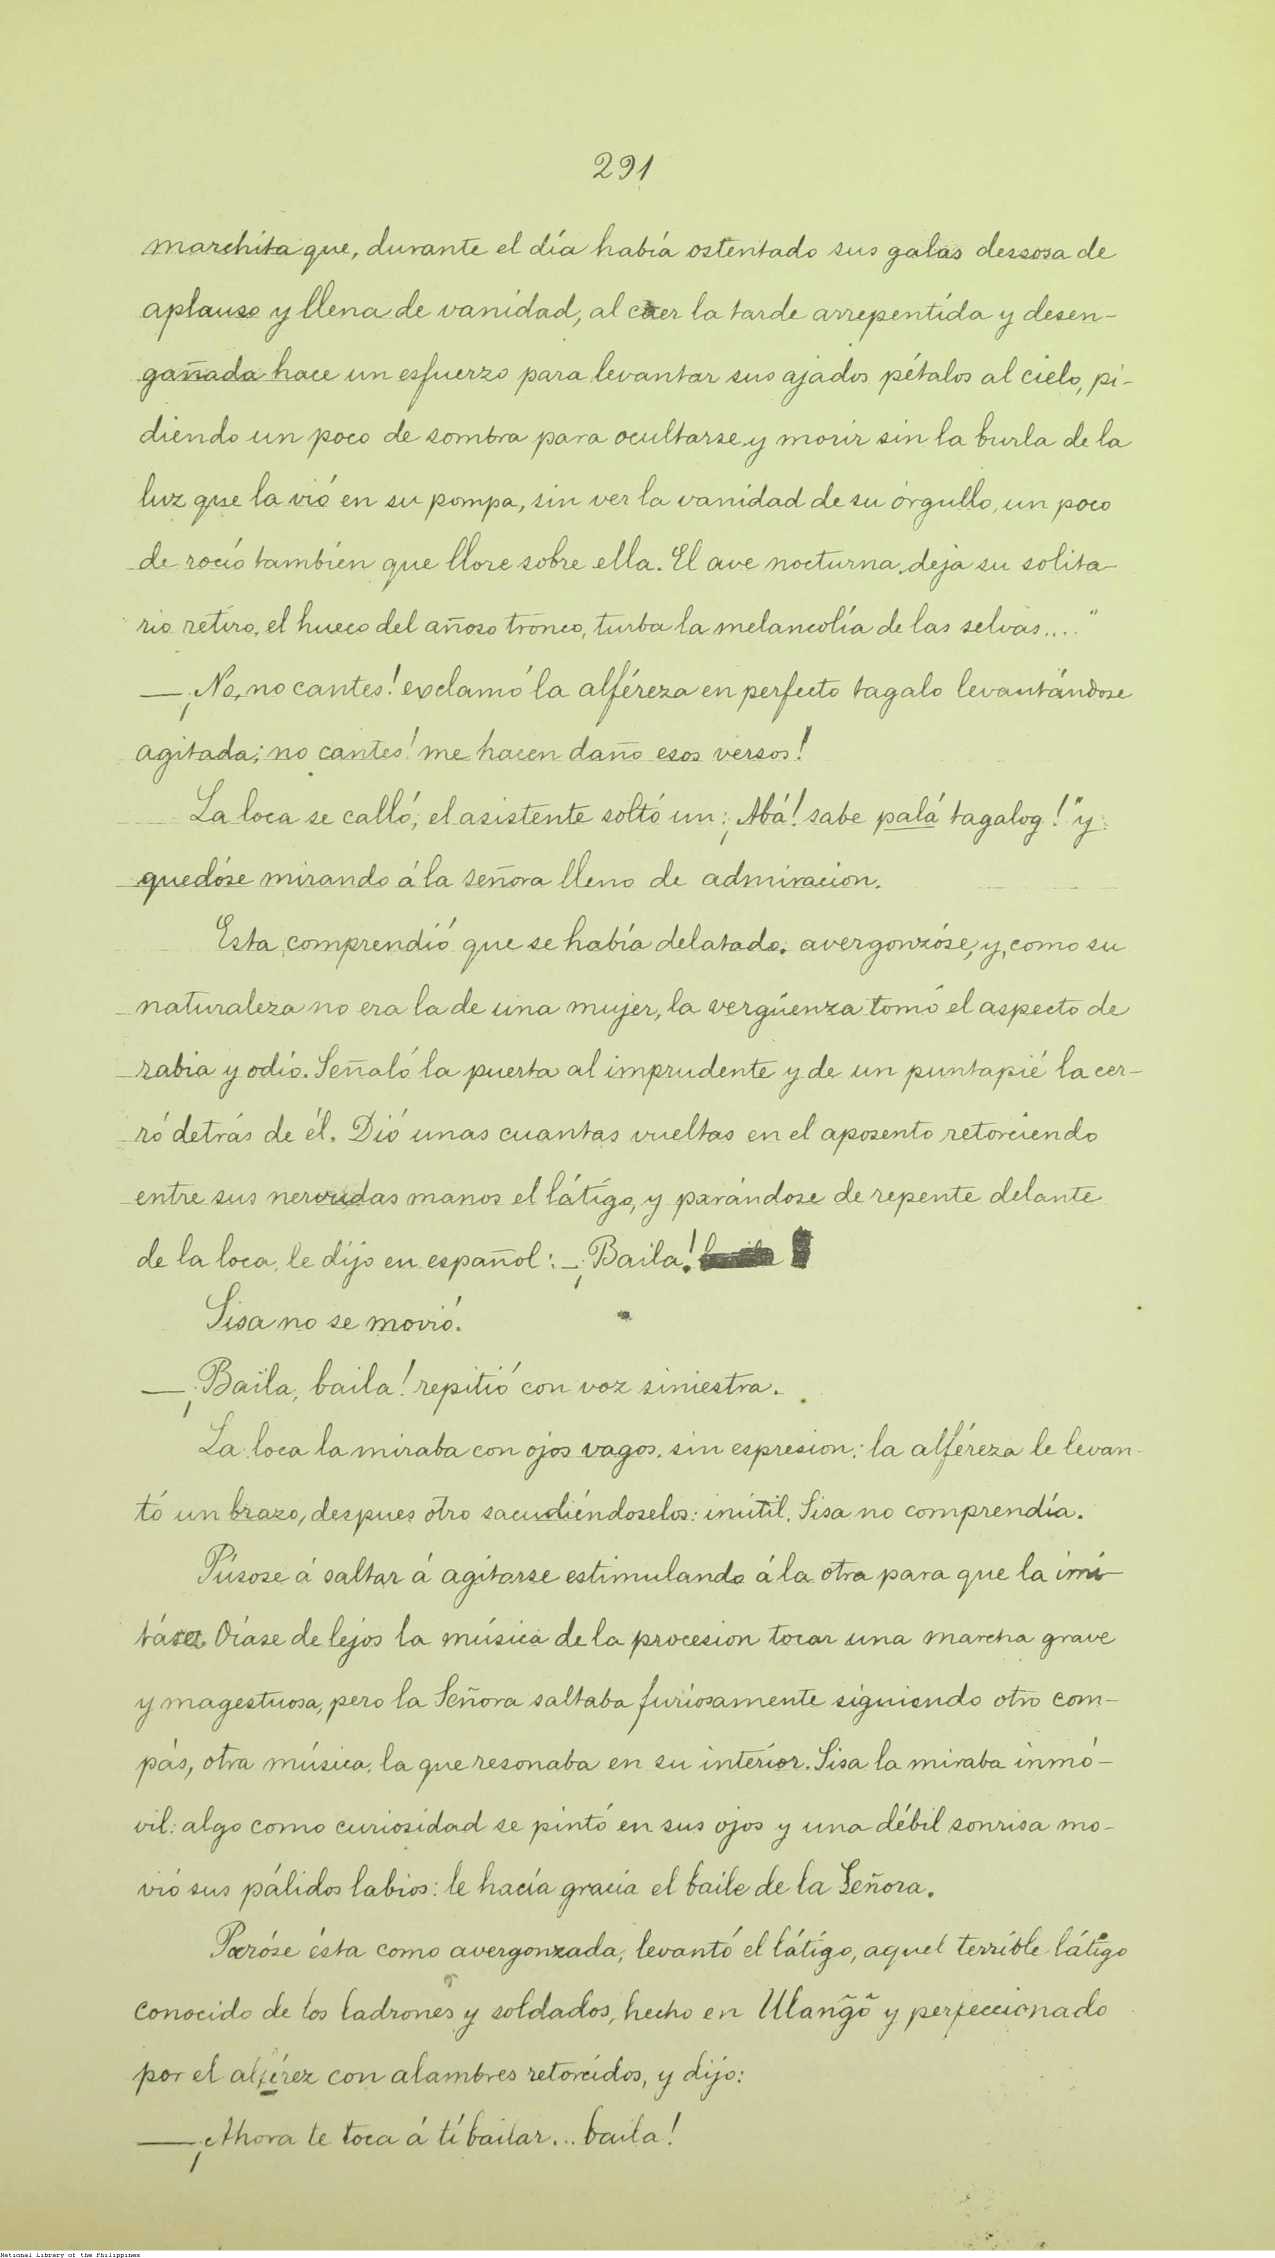 291
marchita que, durante el día había ostentado sus galas dessosa de
aplauso y llena de vanidad, al caer la tarde arrepentida y desen-
gañada hace un esfuerzo para levantar sus ajados pétalos al cielo, pi-
diendo un poco de sombra para ocultarse y morir sin la burla de la
luz que la vió en su pompa, sin ver la vanidad de su orgullo, un poco
de rocío tambien que llore sobre ella. El ave nocturna deja su solita-
rio retiro, el hueco del añoso tronco, turba la melancolía de las selvas...."
—¡No, no cantes! exclamó la alféreza en perfecto tagalo levantándose
agitada; no cantes! me hacen daño esos versos!
La loca se calló; el asistente soltó un: ¡Abá! sabe palá tagalog!" y
quedóse mirando á la señora lleno de admiracion.
Esta comprendió que se había delatado, avergonzóse, y, como su
naturaleza no era la de una mujer, la vergüenza tomó el aspecto de
rabia y odio. Señaló la puerta al imprudente y de un puntapié la cer-
ró detrás de él. Dió unas cuantas vueltas en el aposento retorciendo
entre sus nervudas manos el látigo, y parándose de repente delante
de la loca, le dijo en español: —¡Baila!
Sisa no se movió.
—¡Baila, baila! repitió con voz siniestra.
La loca la miraba con ojos vagos, sin espresion; la alféreza le levan-
tó un brazo, despues otro sacudiéndoselos: inútil. Sisa no comprendía.
Púsose á saltar á agitarse estimulando á la otra para que la imi-
táse. Oíase de lejos la música de la procesion tocar una marcha grave
y magestuosa, pero la Señora saltaba furiosamente siguiendo otro com-
pás, otra música, la que resonaba en su interior. Sisa la miraba inmó-
vil: algo como curiosidad se pintó en sus ojos y una débil sonrisa mo-
vió sus pálidos labios: le hacía gracia el baile de la Señora.
Paróse ésta como avergonzada, levantó el látigo, aquel terrible látigo
conocido de los ladrones y soldados, hecho en Ulang̃õ y perfeccionado
por el alférez con alambres retorcidos, y dijo:
—¡Ahora te toca á tí bailar... baila!
National Library of the Philippines